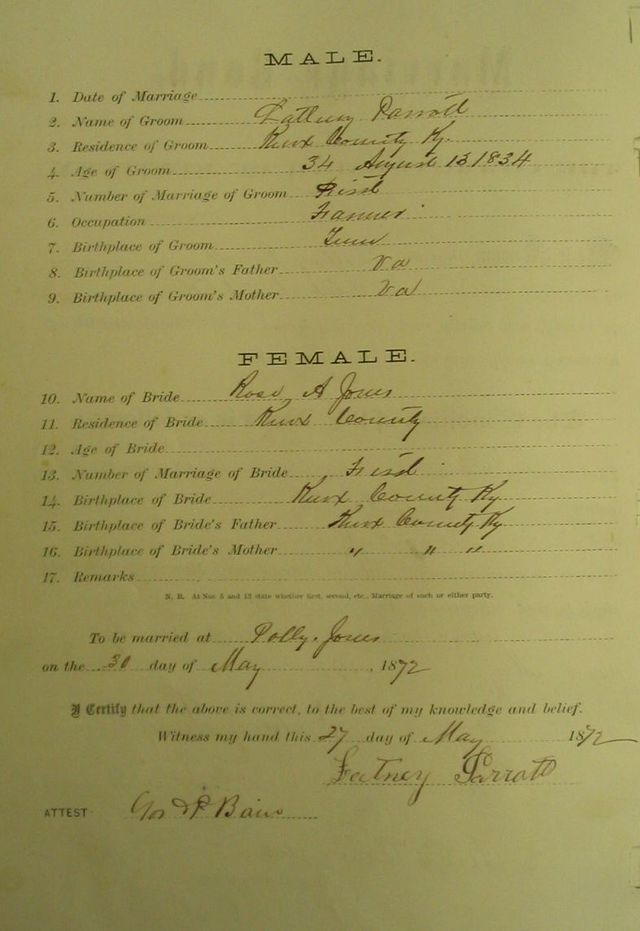 MALE.
1. Date of Marriage
2. Name of Groom Parrott
3. Residence of Groom Knox County Ky.
4. Age of Groom 34 August 13 1834
5. Number of Marriage of Groom First
6. Occupation Farmer
7. Birthplace of Groom Tenn
8. Birthplace of Groom's Father Va
9. Birthplace of Groom's Mother Va
FEMALE.
10. Name of Bride Rose A Jones
11. Residence of Bride Knox County
12. Age of Bride
13. Number of Marriage of Bride First
14. Birthplace of Bride Knox County Ky
15. Birthplace of Bride's Father Knox County Ky
16. Birthplace of Bride's Mother " " "
17. Remarks
N. B. At Nos. 5 and 13 state whether first, second, etc., Marriage of each or either party.
To be married at Polly Jones
on the 30 day of May , 1872
I Certify that the above is correct, to the best of my knowledge and belief.
Witness my hand this 27 day of May 1872
Latney Parrott
ATTEST